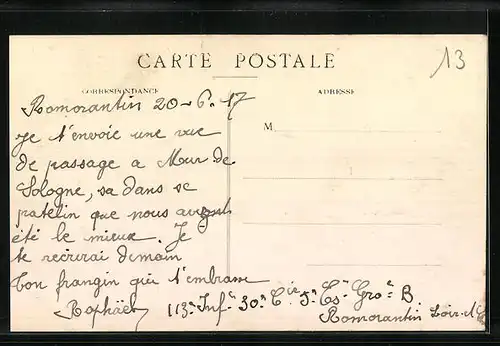 CARTE POSTALE
13
CORRESPONDANCE
ADRESSE
Romorantin 20-6-17
M
Je t'envoie une vue
de passage a Mur de
Sologne, sa dans se
patelin que nous avons
été le mieux. Je
te recrirai demain
ton frangin qui t'embrasse
Raphäel 113e Infie 30e Cie 5e Gro B.
Romorantin Loir-